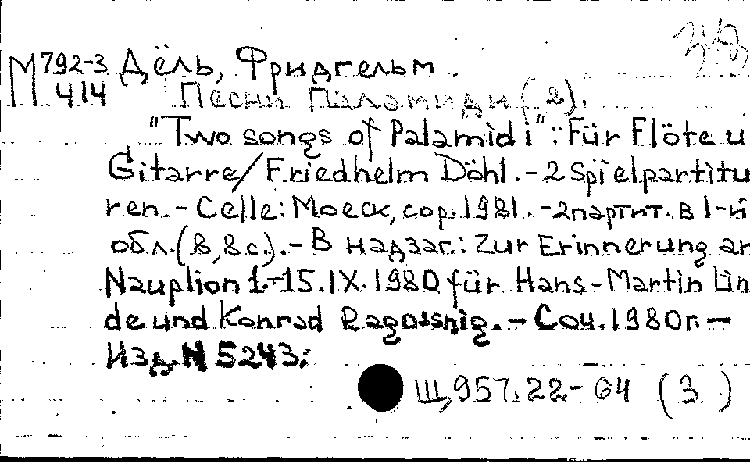 М 792-3 Дёль, Фридгельм.
414 Песни Паламиди (2).
"Two songs of Palamidi": Für Flöte u
Gitarre/Friedhelm Döhl. - 2 Spielpartitu
ren. - Celle: Moeck, cop. 1981. - 2 партит. в 1-й
обл. (8, 8 с.). - В надзаг.: Zur Erinnerung an
Nauplion 1.-15.IX.1980 für Hans-Martin Lin
de und Konrad Ragossnig. - Соч. 1980 г. -
Изд. N 5243:
Щ957.22-04 (3)